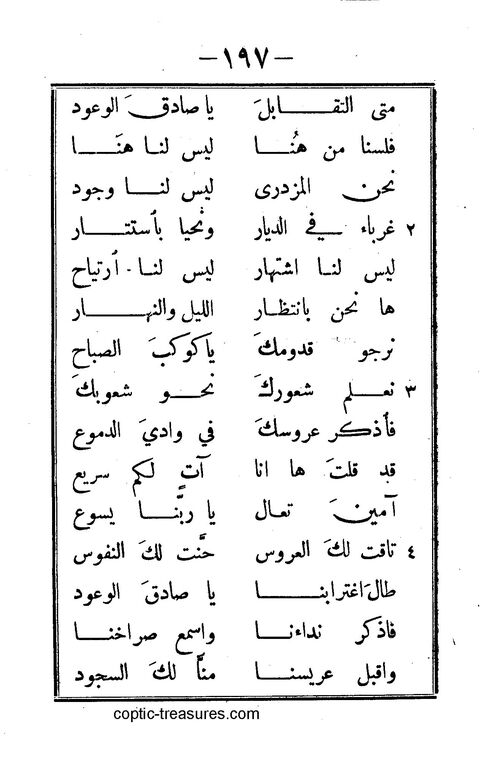 — ١٩٧ —
متى التقابلَ يا صادقَ الوعود
فلسنا من هُنا ليس لنا هنَا
نحن المزدرى ليس لنا وجود
٢ غرباء في الديار ونحيا بأستتار
ليس لنا اشتهار ليس لنا أرتياح
ها نحن بانتظار الليل والنهار
نرجو قدومكَ ياكوكبَ الصباح
٣ نعلم شعوركَ نحو شعوبكَ
فأذكر عروسكَ في واديَ الدموع
قد قلتَ ها انا آتٍ لكم سريع
آمينَ تعال يا ربَّنا يسوع
٤ تاقت لكَ العروس حنَّت لكَ النفوس
طالَ اغترابنا يا صادقَ الوعود
فاذكر نداءنا واسمع صراخنا
واقبل عريسنا منَّا لكَ السجود
coptic-treasures.com